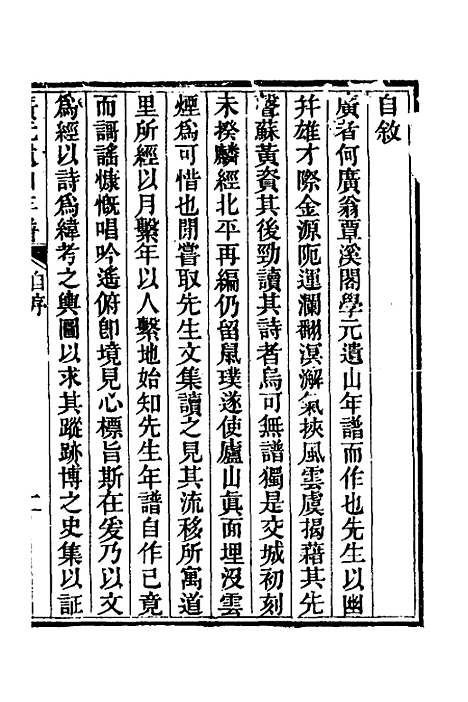 自敘
廣者何廣翁覃溪閣學元遺山年譜而作也先生以幽
幷雄才際金源阨運瀾翻溟澥氣挾風雲虞揭藉其先
聲蘇黃資其後勁讀其詩者烏可無譜獨是交城初刻
未揆麟經北平再編仍留鼠璞遂使廬山眞面埋沒雲
煙爲可惜也閒嘗取先生文集讀之見其流移所寓道
里所經以月繫年以人繫地始知先生年譜自作已竟
而謌謠慷慨唱吟遙俯卽境見心標旨斯在爰乃以文
爲經以詩爲緯考之輿圖以求其蹤跡博之史集以証
自序